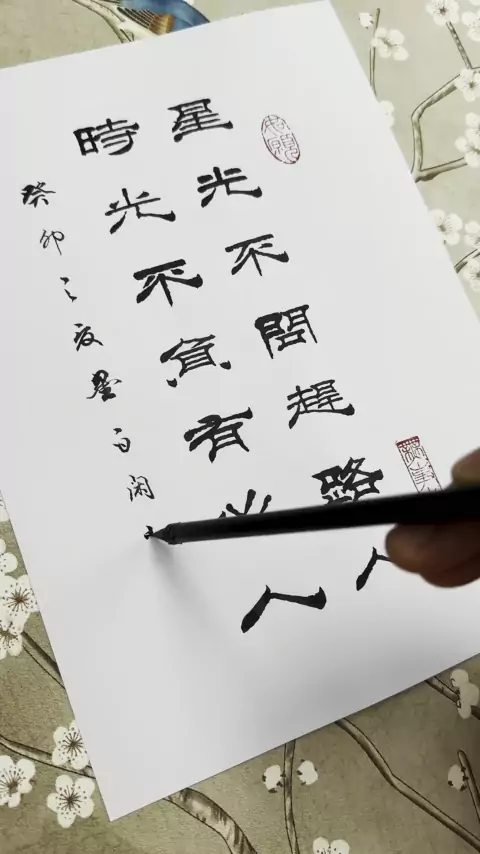 星光不問趕路人
時光不負有心人
癸卯之夏墨白闲